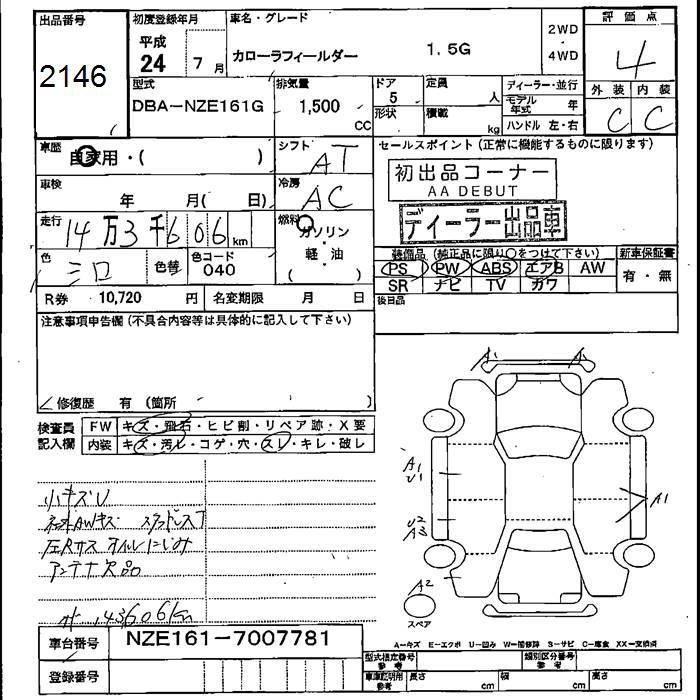 出品番号
2146
初度登録年月
平成
24 7 月
車名・グレード
カローラフィールダー 1.5G
2WD
・
4WD
評価点
4
外装 内装
C C
型式
DBA-NZE161G
排気量
1,500
CC
ドア
5
形状
定員
人
積載
kg
ディーラー・並行
モデル年式 年
ハンドル 左・右
車歴
自家用・( )
シフト
AT
車検
年 月( 日)
冷房
AC
走行
14万3千606km
燃料
ガソリン
・
軽油
( )
色
シロ
色替
色コード
040
R券 10,720 円
名変期限 月 日
セールスポイント(正常に機能するものに限ります)
初出品コーナー
AA DEBUT
ディーラー出品車
装備品(純正品に限り○をつけて下さい)
PS PW ABS エアB AW
SR ナビ TV カワ
新車保証書
有・無
後日品
注意事項申告欄(不具合内容等は具体的に記入して下さい)
修復歴 有(箇所 )
検査員
記入欄
FW キズ・飛石・ヒビ割・リペア跡・X要
内装 キズ・汚レ・コゲ・穴・スレ・キレ・破レ
小キズU
AWキズ スタッドレス
左Rサス オイルにじみ
アンテナ欠品
143606km
A1 A1
A1
U1
U2
A3
A2
A1
スペア
A－キズ E－エクボ U－凹み W－補修跡 S－サビ C－腐食 XX－交換済
車台番号
NZE161-7007781
登録番号
型式指定番号
参考
類別区分番号
参考
車庫証明用
参考
長さ cm
幅 cm
高さ cm